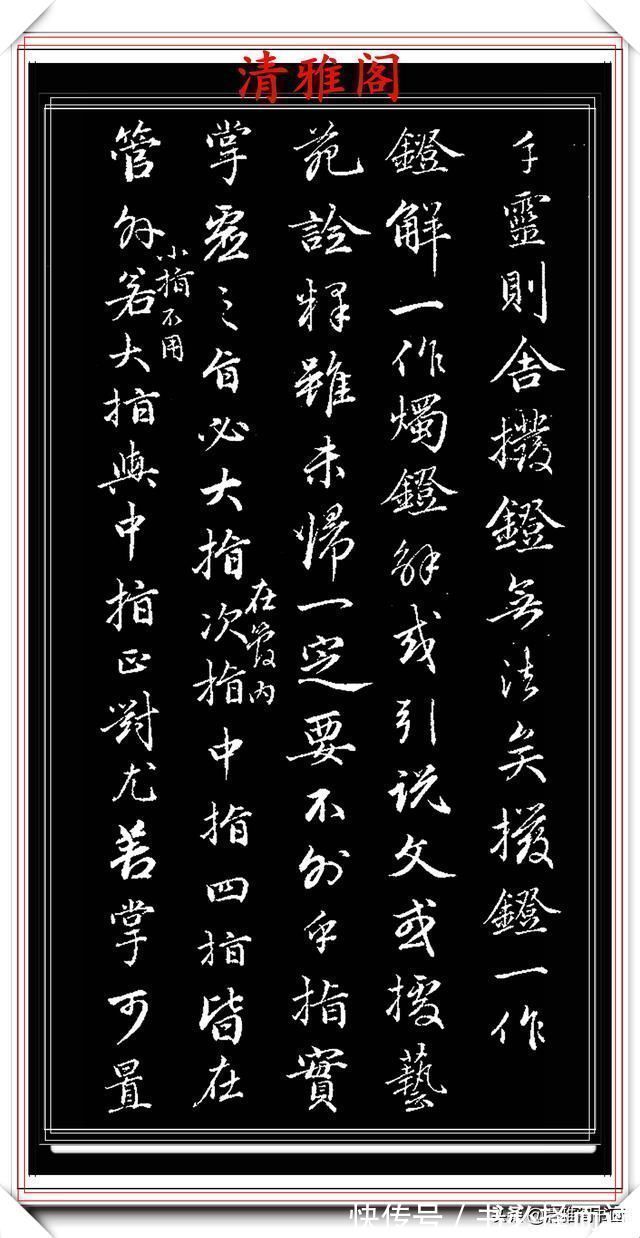 清雅阁
手靈則舍撥鐙無法矣撥鐙一作
鐙解一作燭鐙解或引説文或據藝
苑詮釋雖未歸一定要不外乎指實
掌虛之旨必大指次指中指四指皆在
在管内
管外若大指與中指正對尤善掌可置
小指不用
快传号